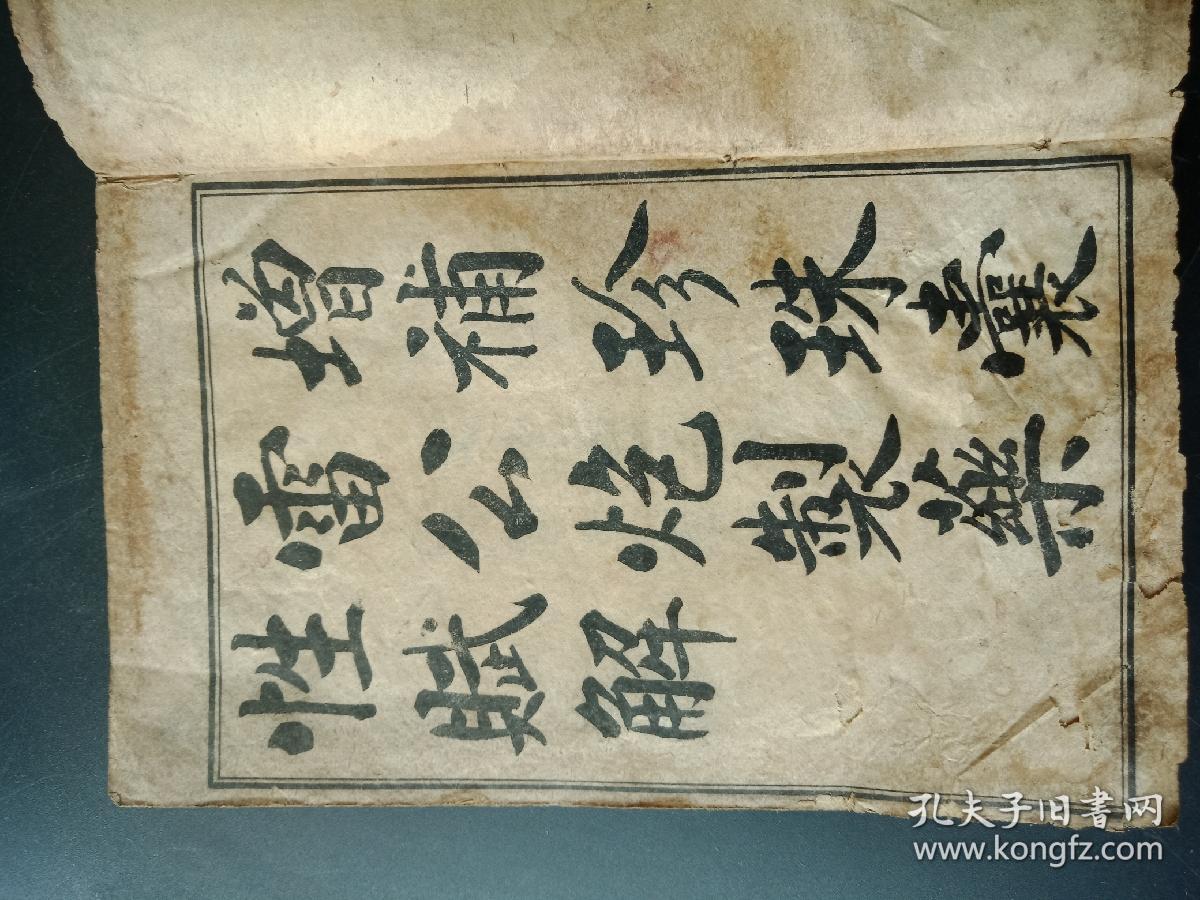 增補珍珠囊
雷公炮製藥
性賦解
孔夫子旧書网
www.kongfz.com